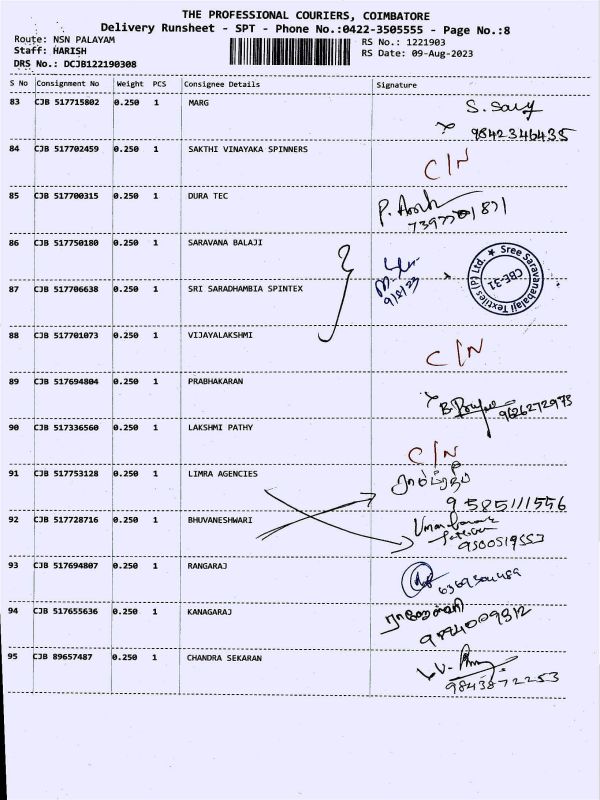 THE PROFESSIONAL COURIERS, COIMBATORE
Delivery Runsheet - SPT - Phone No.:0422-3505555 - Page No.:8
Route: NSN PALAYAM
Staff: HARISH
DRS No.: DCJB122190308
RS No.: 1221903
RS Date: 09-Aug-2023
S No Consignment No Weight PCS Consignee Details Signature
83 CJB 517715802 0.250 1 MARG
9842346435
84 CJB 517702459 0.250 1 SAKTHI VINAYAKA SPINNERS C/N
85 CJB 517700315 0.250 1 DURA TEC
86 CJB 517750180 0.250 1 SARAVANA BALAJI
Sree Saravanabalaji Textiles (P) Ltd. ★ CBE-31
9/8/23
87 CJB 517706638 0.250 1 SRI SARADHAMBIA SPINTEX
88 CJB 517701073 0.250 1 VIJAYALAKSHMI C/N
89 CJB 517694804 0.250 1 PRABHAKARAN
9626272973
90 CJB 517336560 0.250 1 LAKSHMI PATHY C/N
91 CJB 517753128 0.250 1 LIMRA AGENCIES
9585111556
92 CJB 517728716 0.250 1 BHUVANESHWARI
9500519553
93 CJB 517694807 0.250 1 RANGARAJ
94 CJB 517655636 0.250 1 KANAGARAJ
95 CJB 89657487 0.250 1 CHANDRA SEKARAN
9843872253